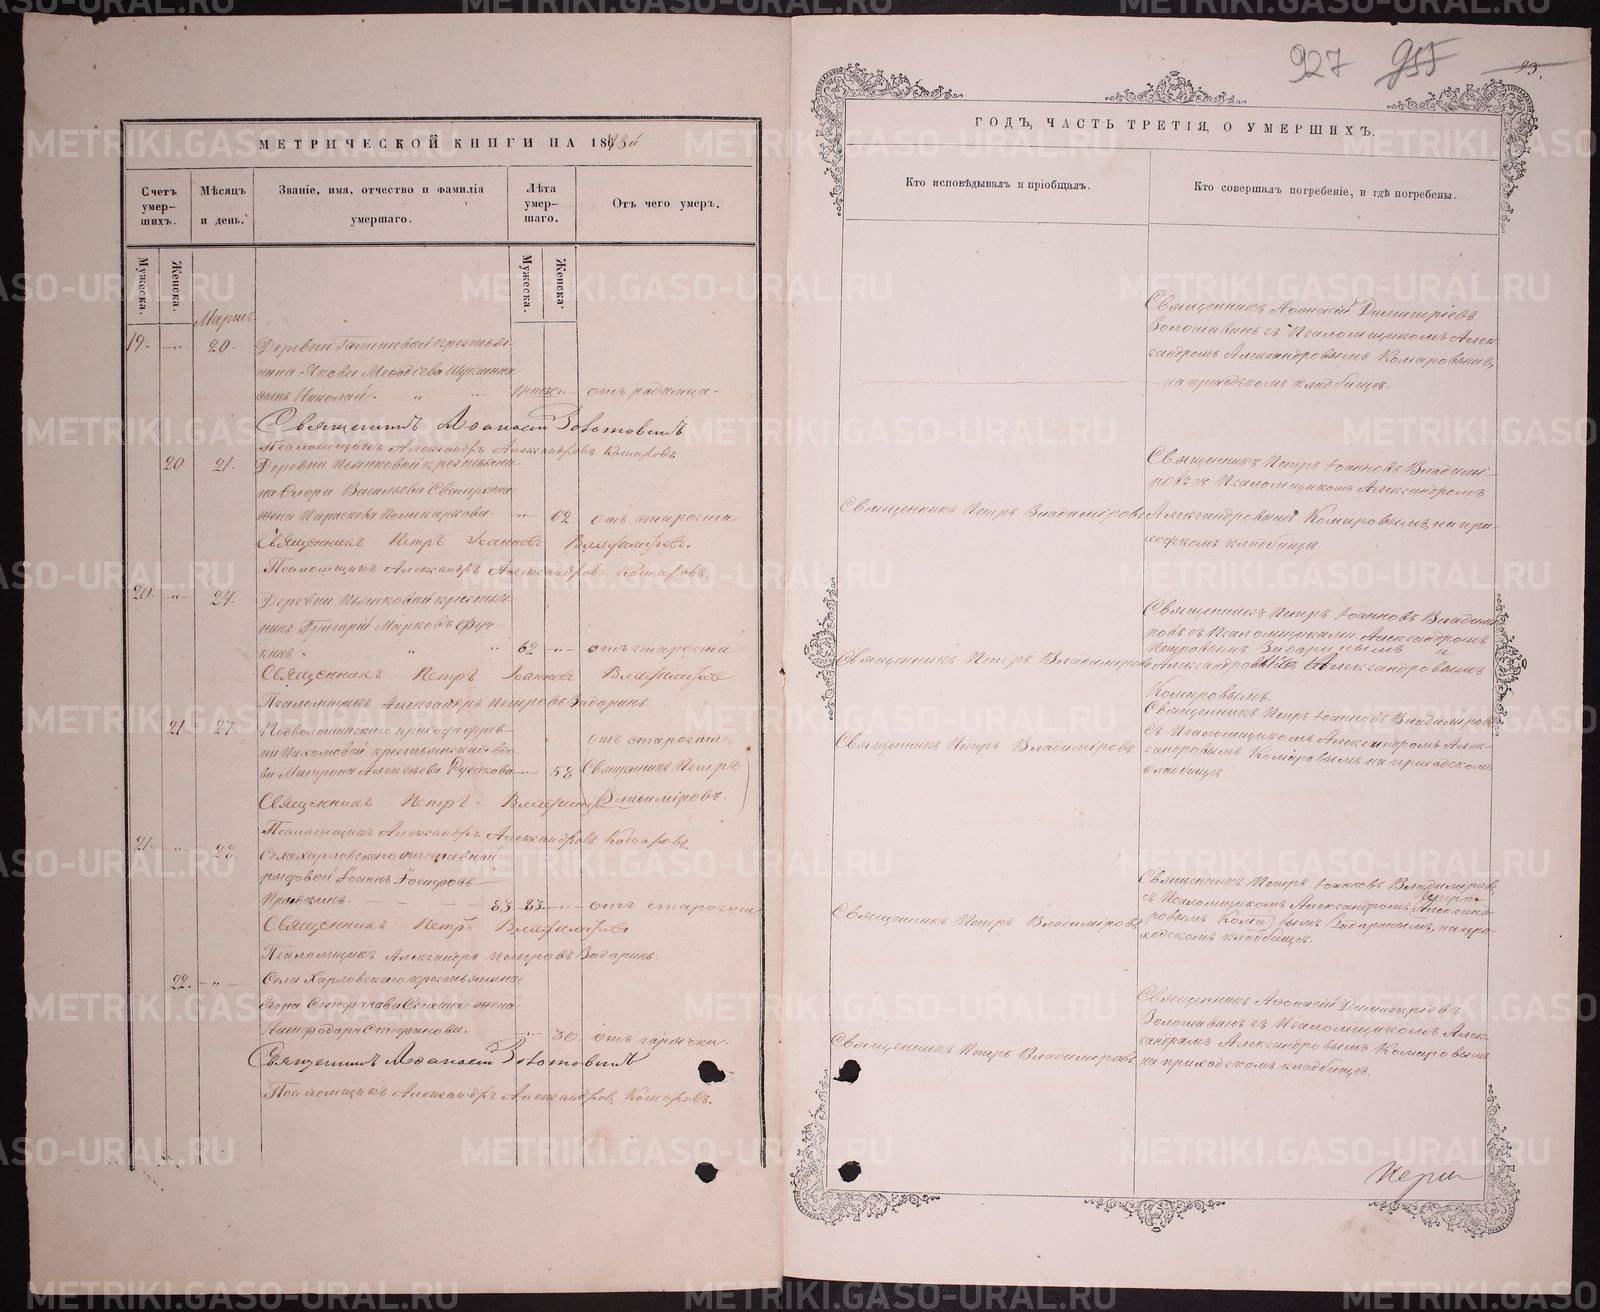 927 955 93.
МЕТРИЧЕСКОЙ КНИГИ НА 188
Счетъ умер-шихъ.
Мѣсяцъ и день.
Званіе, имя, отчество и фамилія умершаго.
Лѣта умер-шаго.
Отъ чего умеръ.
Мужеска.
Женска.
Мужеска.
Женска.
Мартъ
19. — „ — 20. Деревни крестья-
нина Якова Меѳодіева
сынъ Николай. „ „ „ отъ родимца.
Священникъ Аѳанасій
Псаломщикъ Александръ Александровъ Комаровъ.
20. 21. Деревни Пьянковой крестьяни-
на Флора Васильева
жена Параскева Поликарпова. — „ — 62. отъ старости
Священникъ Петръ Іоанновъ Владиміровъ.
Псаломщикъ Александръ Александровъ Комаровъ.
20. „ 24. Деревни Пьянковой крестья-
нинъ Григорій Марковъ
кинъ. „ „ 62 — „ — отъ старости
Священникъ Петръ Іоанновъ Владиміровъ
Псаломщикъ Александръ Петровъ Задоринъ.
21. 27. прихода дерев-
ни Пахомовой крестьянская вдо-
ва Матрона Алексѣева — „ — 58
отъ старости.
Священникъ Петръ
Владиміровъ.
Священникъ Петръ Владиміровъ
Псаломщикъ Александръ Александровъ Комаровъ.
21. — „ — 28. Села Харловскаго отставной
рядовой Іоаннъ Іосифовъ
83 83. — „ — отъ старости
Священникъ Петръ Владиміровъ
Псаломщикъ Александръ Петровъ Задоринъ.
22. — „ — Села Харловскаго крестьянина
Егора Стефанова жена
Стефанова. — „ — 30. отъ горячки.
Священникъ Аѳанасій
Псаломщикъ Александръ Александровъ Комаровъ.
ГОДЪ, ЧАСТЬ ТРЕТІЯ, О УМЕРШИХЪ.
Кто исповѣдывалъ и пріобщалъ.
Кто совершалъ погребеніе, и гдѣ погребены.
Священникъ Аѳанасій Димитріевъ
съ Псаломщикомъ Алек-
сандромъ Александровымъ Комаровымъ,
на приходскомъ кладбищѣ.
Священникъ Петръ Владиміровъ
Священникъ Петръ Іоанновъ Владимі-
ровъ съ Псаломщикомъ Александромъ
Александровымъ Комаровымъ, на при-
ходскомъ кладбищѣ
Священникъ Петръ Владиміровъ
Священникъ Петръ Іоанновъ Владими
ровъ съ Псаломщиками Александромъ
Петровымъ Задоринымъ и
Александромъ Александровымъ
Комаровымъ.
Священникъ Петръ Владиміровъ.
Священникъ Петръ Іоанновъ Владиміровъ
съ Псаломщикомъ Александромъ Алек-
сандровымъ Комаровымъ на приходскомъ
кладбищѣ.
Священникъ Петръ Владиміровъ
Священникъ Петръ Іоанновъ Владиміровъ,
съ Псаломщикомъ Александромъ
Задоринымъ, на при-
ходскомъ кладбищѣ.
Священникъ Петръ Владиміровъ
Священникъ Аѳанасій Димитріевъ
съ Псаломщикомъ Алек-
сандромъ Александровымъ Комаровымъ
на приходскомъ кладбищѣ.
METRIKI.GASO-URAL.RU